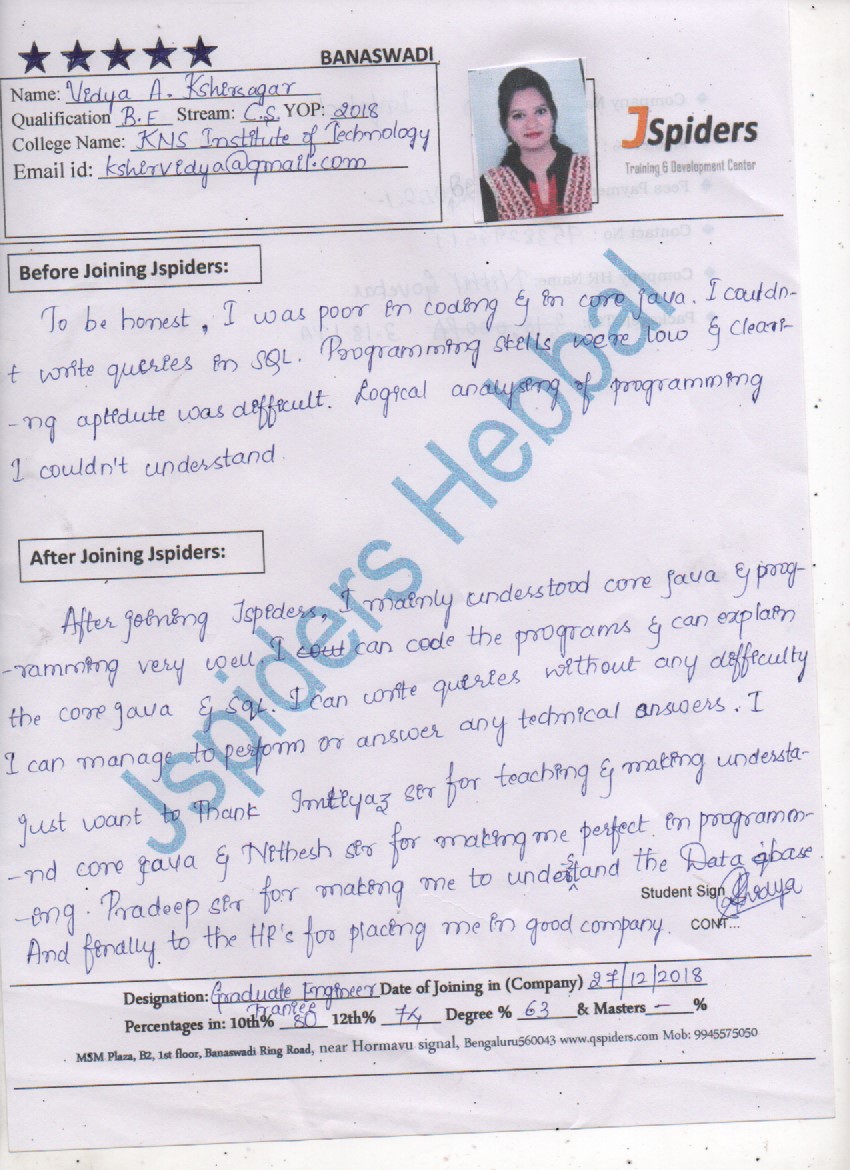 BANASWADI
Name: Vidya A. Kshirsagar
Qualification B.E Stream: C.S YOP: 2018
College Name: KNS Institute of Technology
Email id: kshirvidya@gmail.com
JSpiders
Training & Development Center
Before Joining Jspiders:
To be honest, I was poor in coding & in core java. I couldn-
t write queries in SQL. Programming skills were low & cleari-
-ng aptidute was difficult. Logical analysing of programming
I couldn't understand.
Jspiders Hebbal
After Joining Jspiders:
After joining Jspiders, I mainly understood core java & prog-
-ramming very well. I cout can code the programs & can explain
the core java & SQL. I can write queries without any difficulty
I can manage to perform or answer any technical answers. I
just want to Thank Imtiyaz sir for teaching & making understa-
-nd core java & Nithesh sir for making me perfect in programm-
-ing. Pradeep sir for making me to understand the Data base.
And finally to the HR's for placing me in good company.
Student Sign Vidya
CONT...
Designation: Graduate Engineer Trainee Date of Joining in (Company) 27/12/2018
Percentages in: 10th% 80 12th% 74 Degree % 63 & Masters - %
MSM Plaza, B2, 1st floor, Banaswadi Ring Road, near Hormavu signal, Bengaluru560043 www.qspiders.com Mob: 9945575050